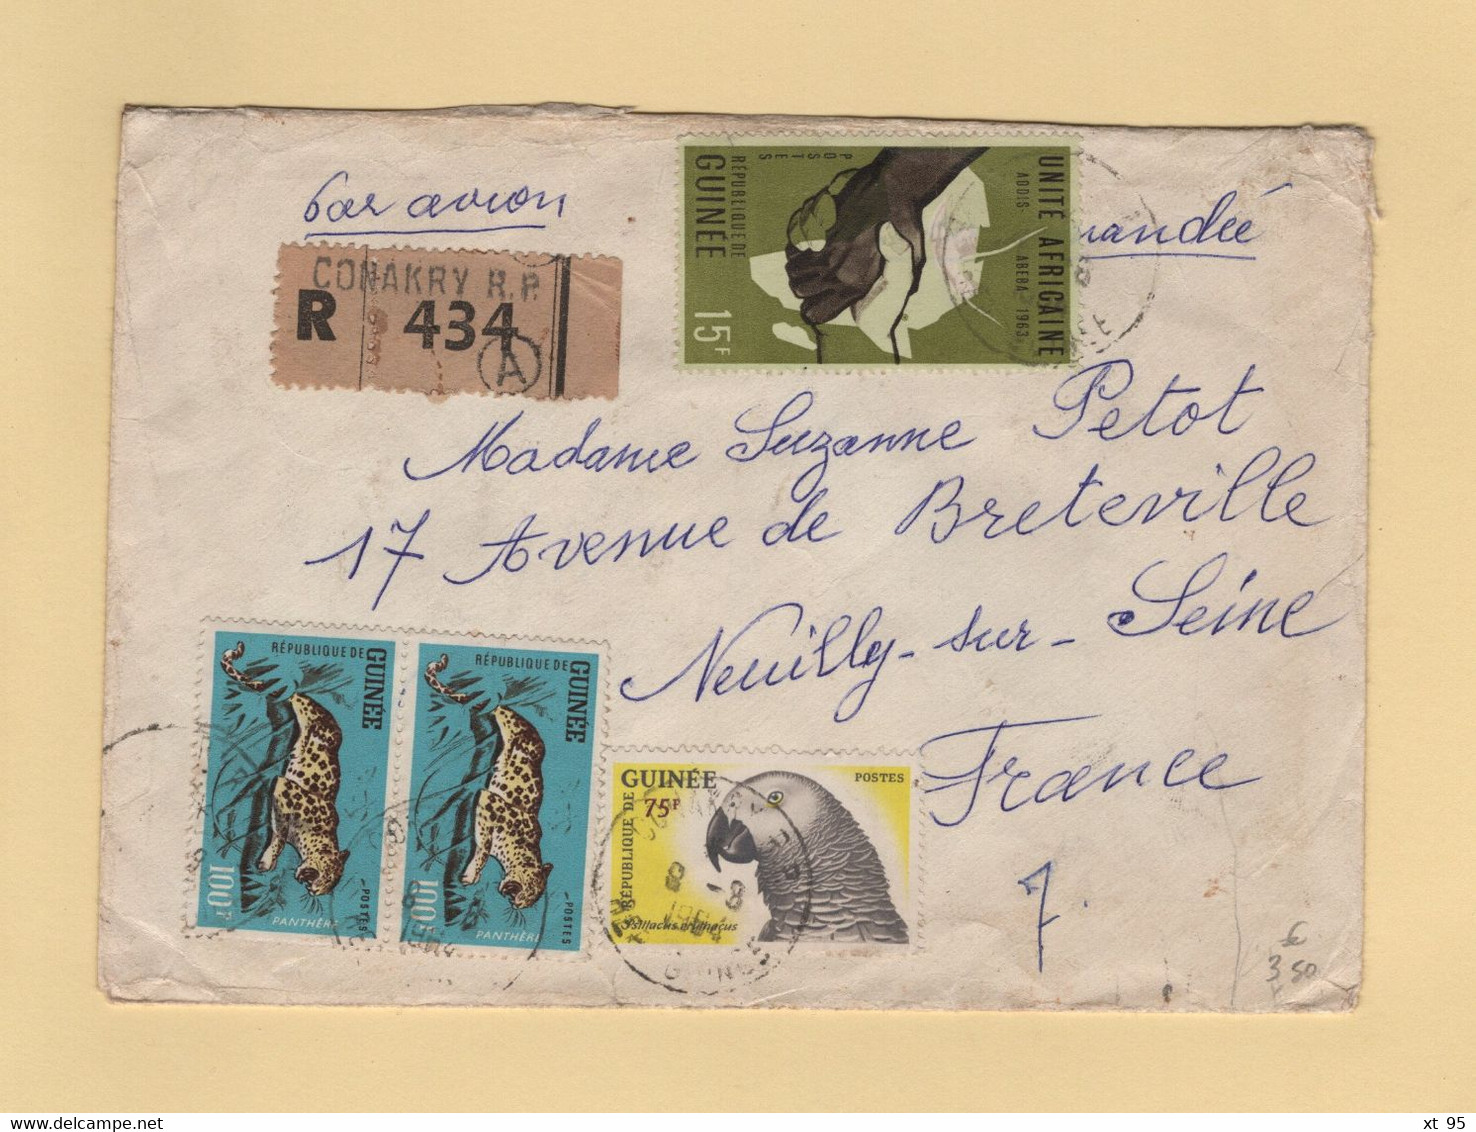 par avion
mandée
CONAKRY R.P.
R 434
A
UNITÉ AFRICAINE
ADDIS-ABEBA-1963
POSTES
RÉPUBLIQUE DE
GUINÉE
15F
Madame Suzanne Petot
17 Avenue de Breteville
Neuilly-sur-Seine
France
7.
RÉPUBLIQUE DE
GUINÉE
100F
PANTHÈRE
POSTES
RÉPUBLIQUE DE
GUINÉE
100F
PANTHÈRE
POSTES
1964
GUINÉE
POSTES
75F
RÉPUBLIQUE DE
Psittacus erithacus
CONAKRY
8-8
1964
GUINEE
3 50
xt 95